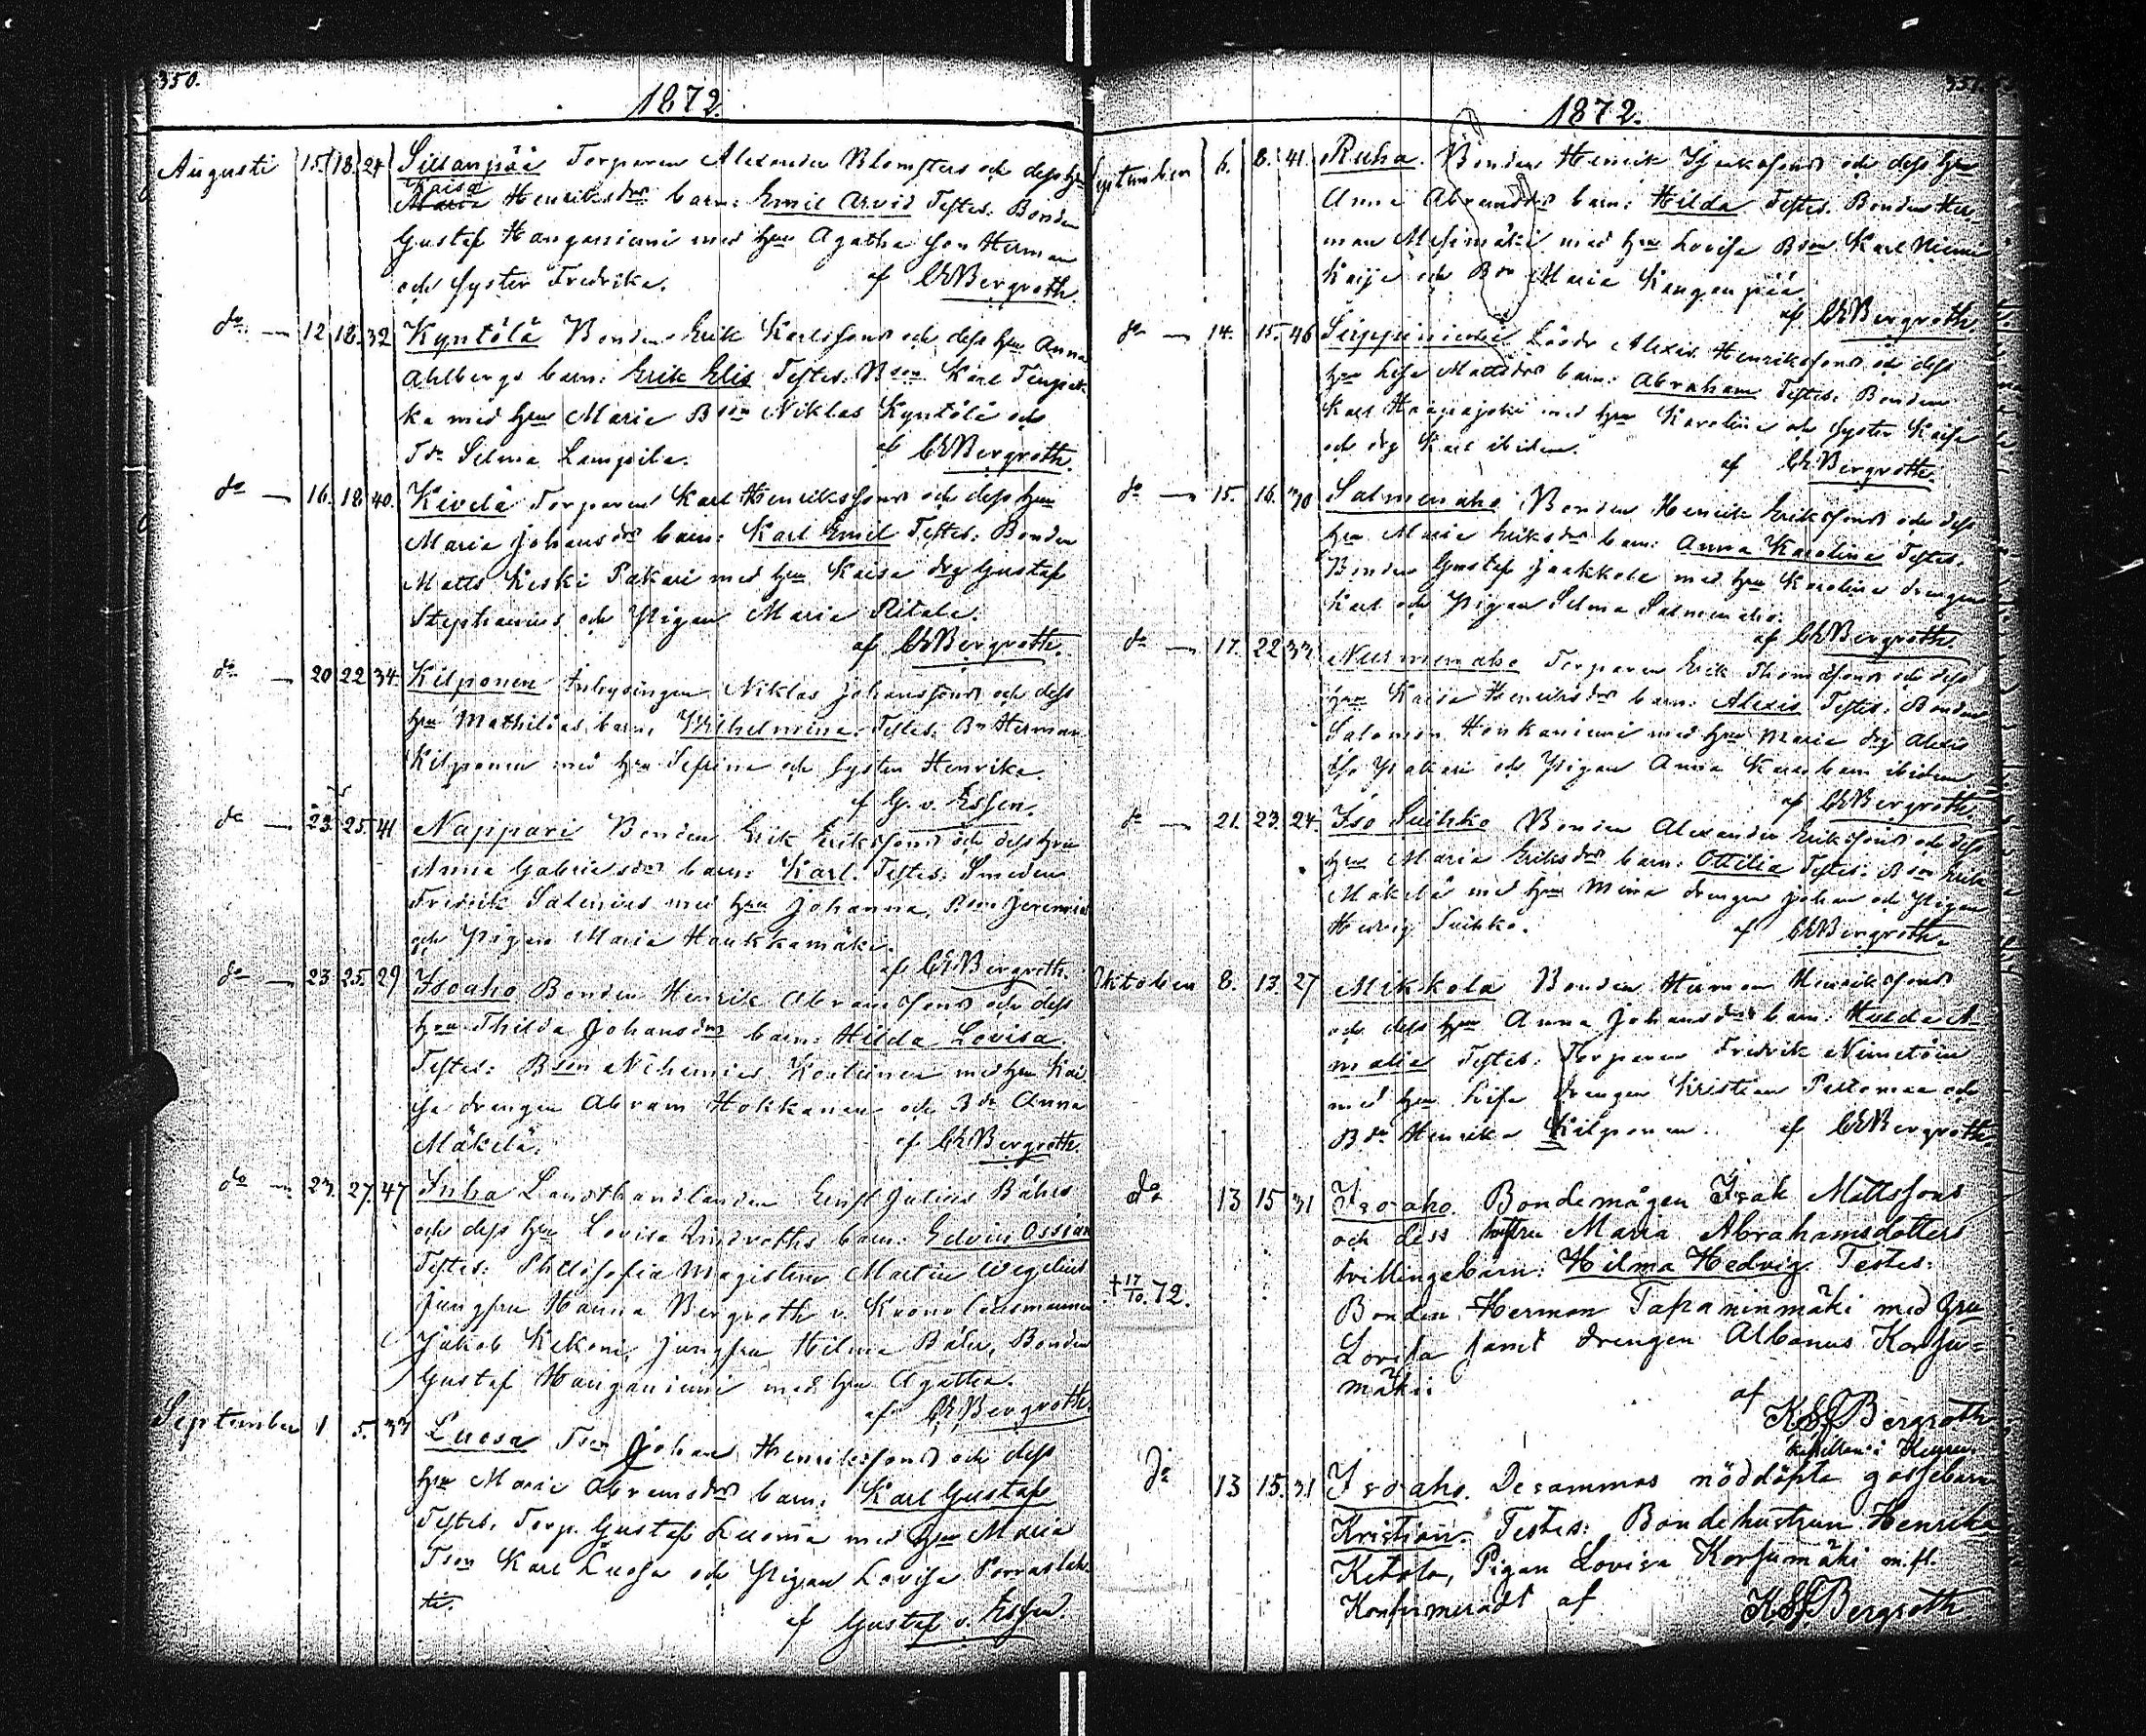 350.
1872.
Augusti 15. 18. 24 Sillanpää Torparen Alexander Blomsters och dess hu
Kaisa Maria Henriksdrs barn: Emil Arvid Testes: Bonden
Gustaf Hanganiemi med hru Agatha son Herman
och syster Fredrika. af ChBergroth.
do — 12 18. 32 Kyntölä Bonden Erik Karlssons och dess hru Anna
Ahlbergs barn: Erik Elis Testes: Bson Karl
ka med hru Maria Bson Niklas Kyntölä och
Tdr Selma Lampila. af ChBergroth.
do — 16. 18 40. Kivelä Torparen Karl Henrikssons och dess hru
Maria Johansdrs barn: Karl Emil Testes: Bonden
Matts Keski Pakari med hru Kaisa drg Gustaf
Stephanius och Pigan Maria Ritala.
af ChBergroth.
do — 20 22 34. Kilponen Inhysingen Niklas Johanssons och dess
hru Mathildas barn: Wilhelmina. Testes: Bn Herman
Kilponen med hru Sefina och syster Henrika.
af G. v. Essen.
do — 23. 25. 41 Nappari Bonden Erik Erikssons och dess hru
Anna Gabrielsdrs barn: Karl. Testes: Smeden
Fredrik Salenius med hru Johanna, Bson Jeremias
och Pigan Maria Haukkamäki.
af ChBergroth.
do — 23 25. 29 Isoaho Bonden Henrik Abramssons och dess
hru Thilda Johansdrs barn: Hilda Lovisa.
Testes: Bson Nehemias Kontinen med hru Kai
sa drengen Abram Hokkanen och Bdr Anna
Mäkelä. af ChBergroth.
do — 23. 27. 47 Inha Landthandlanden Ernst Julius Båhls
och dess hru Lovisa Lindroths barn: Edvin Ossian
Testes: Philosofia Magistern Martin Wegelius
Jungfru Hanna Bergroth v. Krono länsmannen
Jakob Kekoni, Jungfru Hilma Båhl, Bonden
Gustaf Hanganiemi med hru Agatha.
af ChBergroth.
September 1 5. 33 Luosa Tson Johan Henrikssons och dess
hru Maria Abramsdrs barn: Karl Gustaf
Testes: Torp. Gustaf Luoma med hru Maria
Tson Karl Luosa och Pigan Lovisa Porraslah
ti. af Gustaf v. Essen.
351.
1872.
September 6. 8. 41. Ruha. Bonden Henrik Henrikssons och dess hru
Anna Abramsdrs barn: Hilda Testes: Bonden Her
man Mesimäki med hru Lovisa Bson Karl Niemi
Kaija och Bdr Maria Kanganpää
af ChBergroth.
do — 14. 15. 46 Alexis Henrikssons och dess
hru Lisa Mattsdrs barn: Abraham Testes: Bonden
Karl Haapajoki med hru Karolina och syster Kaisa
och drg Karl ibidem.
af ChBergroth.
do — 15. 16. 30 Salmenaho Bonden Henrik Erikssons och dess
hru Maria Eriksdrs barn: Anna Karolina Testes:
Bonden Gustaf Jaakkola med hru Karolina drengen
Karl och Pigan Selma Salmenaho.
af ChBergroth.
do — 17. 22 33 Nurmenaho Torparen Erik Thomassons och dess
hru Kaisa Henriksdrs barn: Alexis Testes: Bonden
Salomon Honkaniemi med hru Maria drg Alexis
Iso Pakari och Pigan Anna ibidem
af ChBergroth.
do — 21. 23. 24. Iso Suihko Bonden Alexander Erikssons och dess
hru Maria Eriksdrs barn: Ottilia Testes: Bson Erik
Mäkelä med hru Mina drengen Johan och Pigan
Hedvig Suihko. af ChBergroth.
Oktober 8. 13. 27 Mikkola Bonden Herman Henrikssons
och dess hru Anna Johansdrs barn: Hulda A-
malia Testes: Torparen Fredrik Nimetöin
med hru Lisa drengen Kristian Peltomaa och
Bdr Henrika Kilponen. af ChBergroth.
do 13 15 31 Isoaho. Bondemågen Isak Mattssons
och dess hustru Maria Abrahamsdotters
tvillingebarn: Hilma Hedvig. Testes:
† 17/10. 72.
Bonden Herman Tapaninmäki med hru
Lovisa samt drengen Albanus Korsu=
mäki: af
K.S.J.Bergroth
kapellan i Keuru.
do 13 15. 31 Isoaho. Desammas nöddöpta gossebarn
Kristian. Testes: Bondehustrun Henrika
Ketola, Pigan Lovisa Korsumäki m. fl.
Konfirmeradt af K.S.J.Bergroth